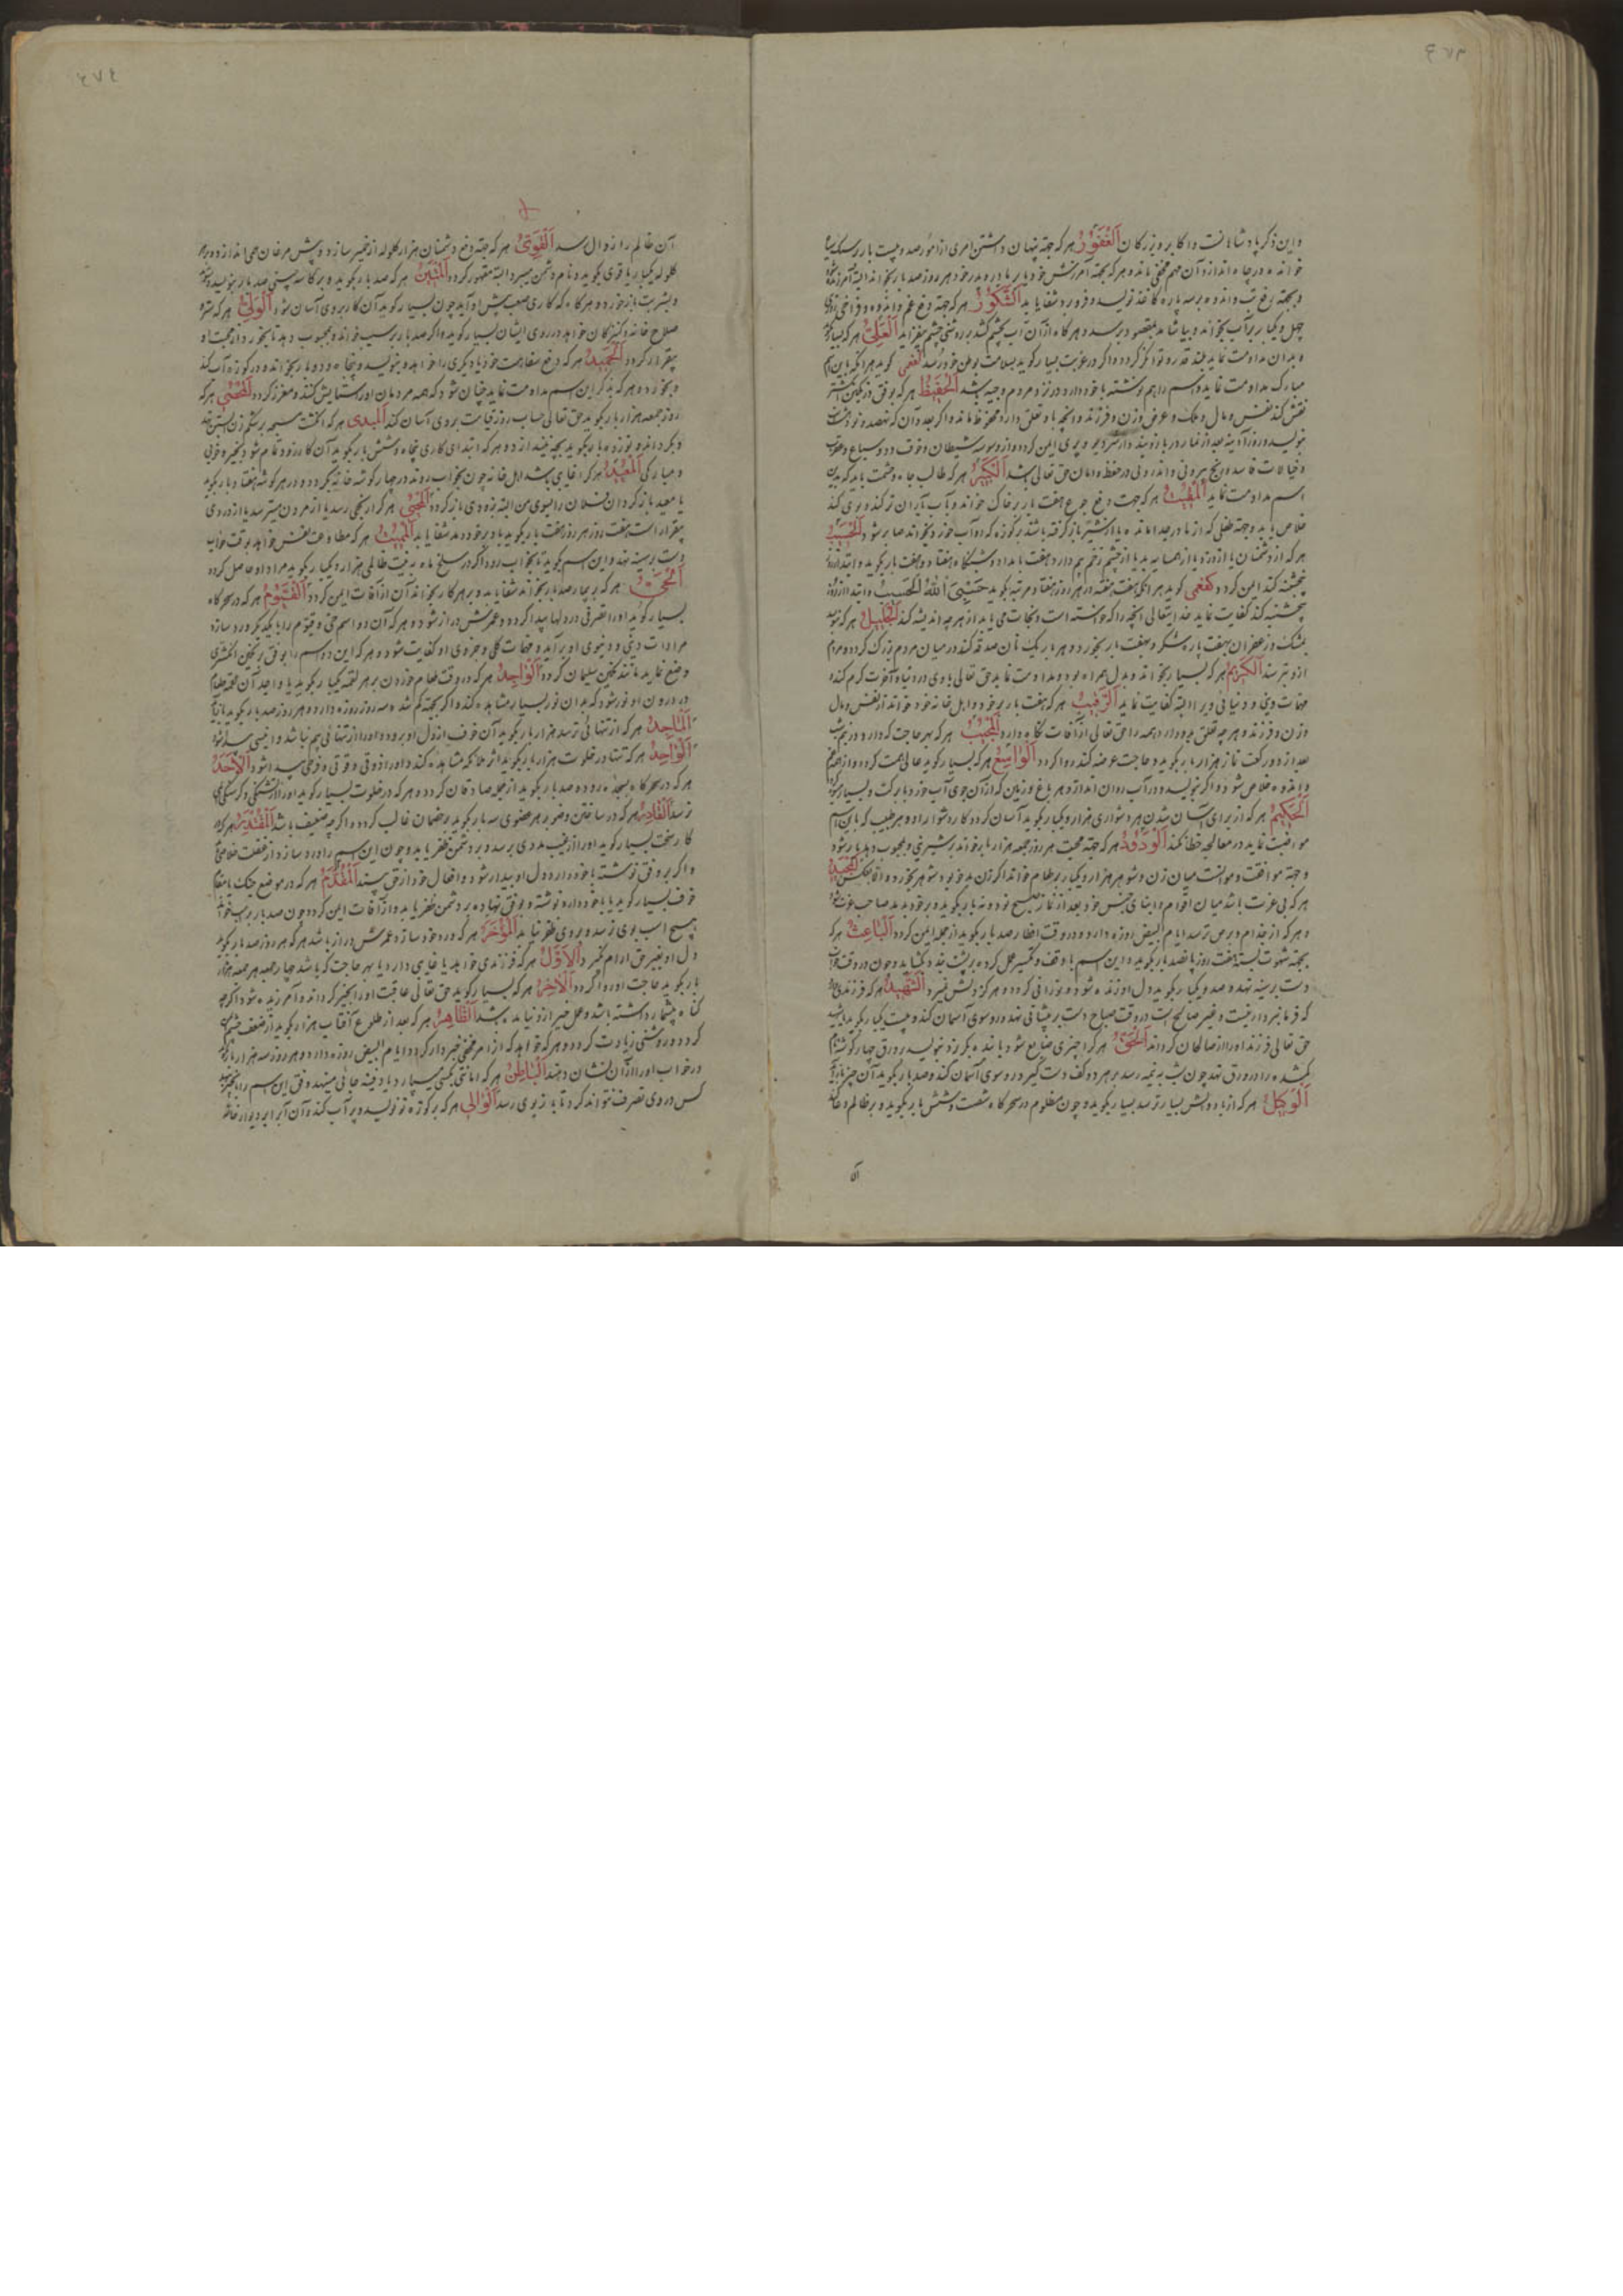 و این ذکر پادشاهانست و اکابر و بزرکان اَلْغَفُورُ هر که جهة پنهان داشتن امری از امور صد و بیست بار بر سنک سیاه
خوانده در چاه اندازد آن مهم مخفی ماند و هر که بجهة آمرزش خود یا پدر یا مادر خود هر روز صد بار بخواند البته آمرزیده شود
و بجهة رفع تب و اندوه بر سه پاره کاغذ نویسد و فرو برد شفا یابد اَلشَّکُورُ هر که جهة دفع غم و اندوه و فراخی روزی
چهل و یکبار بر آب بخواند و بیاشامد بمقصود برسد و هر کاه از آن آب بچشم کشد بر روشنی چشم بیفزاید اَلْعَلِیُّ هر که بسیار کوید
و بدان مداومت نماید بلند قدر و توانکر کردد و اکر در غربت بسیار کوید بسلامت بوطن خود رسد کفعمی کوید هر آنکه باین اسم
مبارک مداومت نماید و اسم را هم نوشته با خود دارد در نزد مردم وجیه باشد اَلْحَفِیظُ هر که بوفق در نکین انکشتر
نقش کند نفس و مال و ملک و عرض و زن و فرزند و آنچه باو تعلق دارد محفوظ ماند و اکر بعد از آن که نهصد و نود و هشت
بنویسد و روز آدینه بعد از نماز در بازو بندد از شر دیو و پری ایمن کردد و از وسوسه شیطان و خوف دد و سباع و عقرب
و خیالات فاسد و رنج بیرونی و اندرونی در حفظ و امان حق تعالی باشد اَلْکَبِیرُ هر که طالب جاه و حشمت باشد باید که بدین
اسم مداومت نماید اَلْمُقِیتُ هر که جهت دفع جوع هفت بار بر خاک خواند و به آب باران تر کند و بوی کند
خلاص یابد
هر که از دشمنان یا از دزد یا از همسایه بد یا از چشم زخم بیم دارد هفت بامداد و شبانکاه هفتاد و هفت بار بکوید و ابتدا از روز
پنجشنبه کند ایمن کردد و کفعمی کوید هر آنکه هفت هفته در هر روز هفتاد مرتبه بکوید حَسْبِیَ اللّٰهُ الْحَسِیبُ و ابتدا از روز
پنجشنبه کند کفایت نماید خدایتعالی آنچه را که خواسته است و نجات می یابد از هر چه اندیشه کند اَلْجَلِیلُ هر که نویسد
بمشک و زعفران
ازو بترسند اَلْکَرِیمُ هر که بسیار بخواند و بدل همراه بود و مداومت نماید حق تعالی با وی در دنیا و آخرت کرم کند و
مهمات دینی و دنیائی ویرا البته کفایت نماید اَلرَّقِیبُ هر که هفت بار بر خود و اهل خانه خود خواند از نفس و مال
و زن و فرزند و هر چه تعلق بدو دارد همه را حق تعالی از آفات نکاه دارد اَلْمُجِیبُ هر که بهر حاجت که دارد در نیم شب
بعد از دو رکعت نماز هزار بار بکوید و حاجت عرضه کند روا کردد اَلْوَاسِعُ هر که بسیار کوید عالی همت کردد و از هم و غم
و اندوه خلاص شود و اکر بنویسد و در آب روان اندازد هر باغ و زمین که از آن جوی آب خورد با برکت و بسیار ثمر شود
اَلْحَکِیمُ هر که از برای آسان شدن هر دشواری هزار و یکبار بکوید آسان کردد کار دشوار او و هر طبیب که باین اسم
مواظبت نماید در معالجه خطا نکند اَلْوَدُودُ هر که جهة محبت هر روز جمعه هزار بار خواند بر شیرینی و بمحبوب دهد یار شود
و جهة موافقت و مؤانست میان زن و شوهر هزار و یکبار بر طعام خواند اکر زن بد خو بود شوهر بخورد و اکر بالعکس اَلْمَجِیدُ
هر که بی عزت باشد میان اقوام و ابنای جنس خود بعد از نماز صبح نود و نه بار بکوید و بر خود بدمد صاحب عزت شود
و هر که از جذام و برص ترسد ایام البیض روزه دارد و در وقت افطار صد بار بکوید از جمله ایمن کردد اَلْبَاعِثُ هر که
بجهة شهوت بسته هفت روز پانصد بار بکوید و این اسم با وقف و تکسیر عمل کرده بر پشت بندد بکشاید و چون در وقت خواب
دست بر سینه نهد و صد و یکبار بکوید دل او زنده شود و نورانی کردد و هرکز دلش نمیرد اَلشَّهِیدُ هر که فرزندی دارد
که فرمانبردار نیست و غیر صالح است در وقت صباح دست بر پیشانی نهد و روسوی آسمان کند و بیست یکبار بکوید یا شهید
حق تعالی فرزند او را از صالحان کرداند اَلْحَقُّ هر کرا چیزی ضایع شود یا بنده بکریزد بنویسد بر ورق چهار کوشه نام
کمشده را در ورق نهد چون شب به نیمه رسد بر هر دو کف دست کیرد و روسوی آسمان کند و صد بار بکوید آن چیز باز آید
اَلْوَکِیلُ هر که از باد و آتش بسیار ترسد بسیار بکوید و چون مظلوم در سحرکاه شصت و شش بار بکوید و بر ظالم دعا کند
آن
آن ظالم را زوال رسد اَلْقَوِیُّ هر که جهة دفع دشمنان هزار کلوله از خمیر سازد و پیش مرغان می اندازد و بر هر
کلوله یکبار یا قوی بکوید و نام دشمن میبرد البته مقهور کردد اَلْمَتِینُ هر که صد بار بکوید
چون بسیار کوید آن کار بروی آسان شود اَلْوَلِیُّ هر که
صلاح خانه و کنیزکان خواهد در روی ایشان بسیار کوید و اکر صد بار بر سیب خواند و بمحبوب دهد تا بخورد از محبت او
بیقرار کردد اَلْحَمِیدُ هر که دفع سفاهت خود یا دیکری را خواهد بنویسد و پنجاه و دو بار بخواند و در کوزه آب کند
و بخورد و هر که بذکر این اسم مداومت نماید چنان شود که همه مردمان او را ستایش کنند و معزز کردد اَلْمُحْصِی هر که
روز جمعه هزار بار بکوید حق تعالی حساب روز قیامت بر وی آسان کند اَلْمُبْدِی هر که انکشت مسبحه بر شکم زن آبستن نهد
و بکرداند و نوزده بار بکوید بچه نیندازد و هر که ابتدای کاری پنجاه و شش بار بکوید آن کار زود تمام شود بخیر و خوبی
و مبارکی اَلْمُعِیدُ هر کرا غایبی باشد اهل خانه چون بخواب روند در چهار کوشه خانه بکردد و در هر کوشه هفتاد بار بکوید
یا معید باز کردان فلان را بسوی من البته بزودی باز کردد اَلْمُحْیِی هر که از رنجی رسد یا از مردن میترسد یا از دردی
بیقرار است هفت روز هر روز هفت بار بکوید و بر خود دمد شفا یابد اَلْمُمِیتُ هر که مطاوعت نفس خواهد بوقت خواب
دست بر سینه نهد و این اسم بکوید تا بخواب رود و اکر در سلخ ماه به نیت ظالمی هزار و یکبار بکوید مراد او حاصل کردد
اَلْحَیُّ هر که بر بیمار صد بار بخواند شفا یابد و بر هر کار بخواند آن از آفات ایمن کردد اَلْقَیُّومُ هر که در سحرکاه
بسیار کوید او را تصرفی در دلها پیدا کردد و عمرش دراز شود و هر که آن دو اسم حی و قیوم را بایکدیکر ورد سازد
مرادات دینی و دنیوی او بر آید و مهمات کلی و جزوی او کفایت شود و هر که این دو اسم را بوفق بر نکین انکشتری
وضع نماید مانند نکین سلیمان کردد اَلْوَاجِدُ هر که در وقت طعام خوردن بر هر لقمه یکبار بکوید یا واجد آن لقمه طعام
در درون او نور شود که بدان نور بسیار مشاهده کند
اَلْمَاجِدُ هر که از تنهائی ترسد هزار بار بکوید آن خوف از دل او برود و او را از تنهائی بیم نباشد و انیسی پیدا شود
اَلْوَاحِدُ هر که تنها در خلوت هزار بار بکوید اثر ملائکه مشاهده کند و او را ذوقی و فرحی پیدا شود اَلْأَحَدُ
هر که در سحرکاه بسجده رود و صد بار بکوید از جمله صادقان کردد و هر که در خلوت بسیار کوید او را از تشنکی و کرسنکی رنج
نرسد اَلْقَادِرُ هر که در ساختن وضو بر هر عضوی سه بار بکوید بر خصمان غالب کردد و اکر چه ضعیف باشد اَلْمُقْتَدِرُ هر که در
کار سخت بسیار کوید او را از غیب مددی برسد و بر دشمن ظفر یابد و چون این اسم را ورد سازد از غفلت خلاص یابد
و اکر بر وفق نوشته با خود دارد دل او بیدار شود و افعال خود از حق بیند اَلْمُقَدِّمُ هر که در موضع جنک یا مقام
خوف بسیار کوید یا با خود دارد نوشته و بوفق نهاده بر دشمن ظفر یابد و از آفات ایمن کردد
هیچ اسب بوی نرسد و بر وی ظفر نیابد اَلْمُؤَخِّرُ هر که ورد خود سازد عمرش دراز باشد هر که هر روز صد بار بکوید
دل او بغیر حق آرام نکیرد اَلْأَوَّلُ هر که فرزندی خواهد یا غایبی دارد یا بهر حاجت که باشد چهل جمعه هر جمعه هزار
بار بکوید حاجت او روا کردد اَلْآخِرُ هر که بسیار کوید حق تعالی عاقبت او را بخیر کرداند و آمرزیده شود اکرچه
کناه بیشمار داشته باشد و عمل خیر ازو نیامده باشد اَلظَّاهِرُ هر که بعد از طلوع آفتاب هزار بار بکوید از ضعف چشم ایمن
کردد و روشنی زیادت کردد و هر که خواهد که از امر مخفی خبردار کردد ایام البیض روزه دارد و هر روز سه هزار بار بکوید
در خواب او را از آن نشان دهند اَلْبَاطِنُ هر که امانتی بکسی میسپارد یا دفینه جائی مینهد وفق این اسم را
کس در وی تصرف نتواند کرد تا باز بوی رسد اَلْوَالِی هر که بر کوزه نو نویسد و پر آب کند و آن آب را بر دیوار خانه